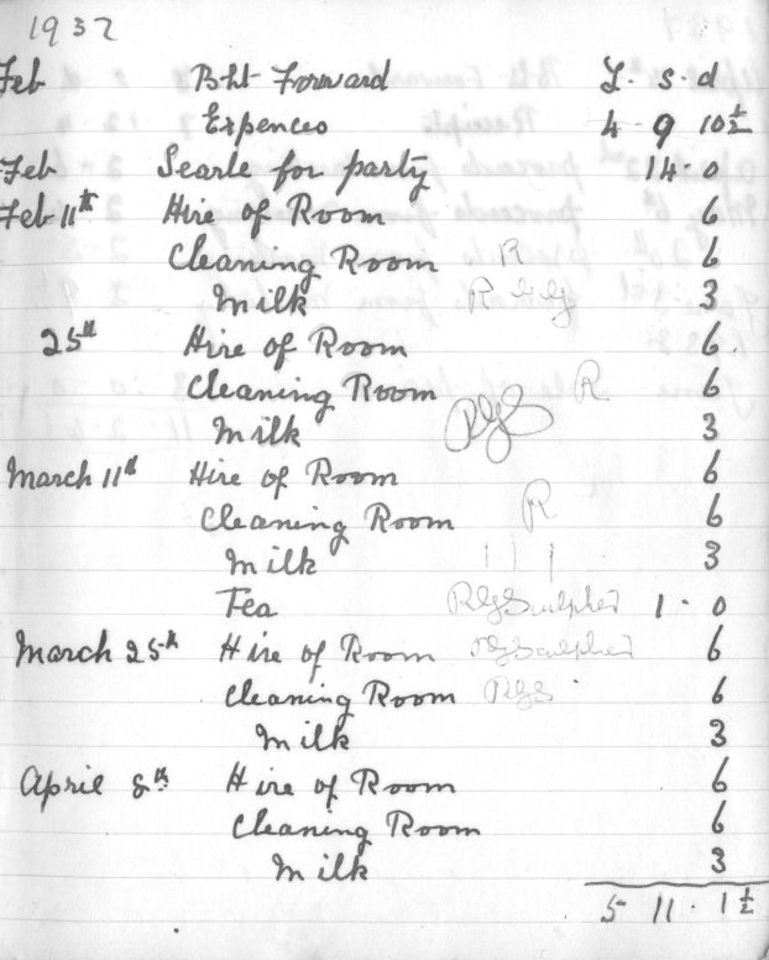 1937
Feb Bht Forward £. s. d
Expences 4 - 9 10½
Feb Searle for party 14 - 0
Feb 11th Hire of Room 6
Cleaning Room R 6
Milk R 3
25th Hire of Room 6.
Cleaning Room R 6
Milk RGS 3
March 11th Hire of Room 6
Cleaning Room R 6
Milk 3
Tea RGSculpher 1 - 0
March 25th Hire of Room RGSculpher 6
Cleaning Room RGS 6
Milk 3
April 8th Hire of Room 6
Cleaning Room 6
Milk 3
5 11 - 1½